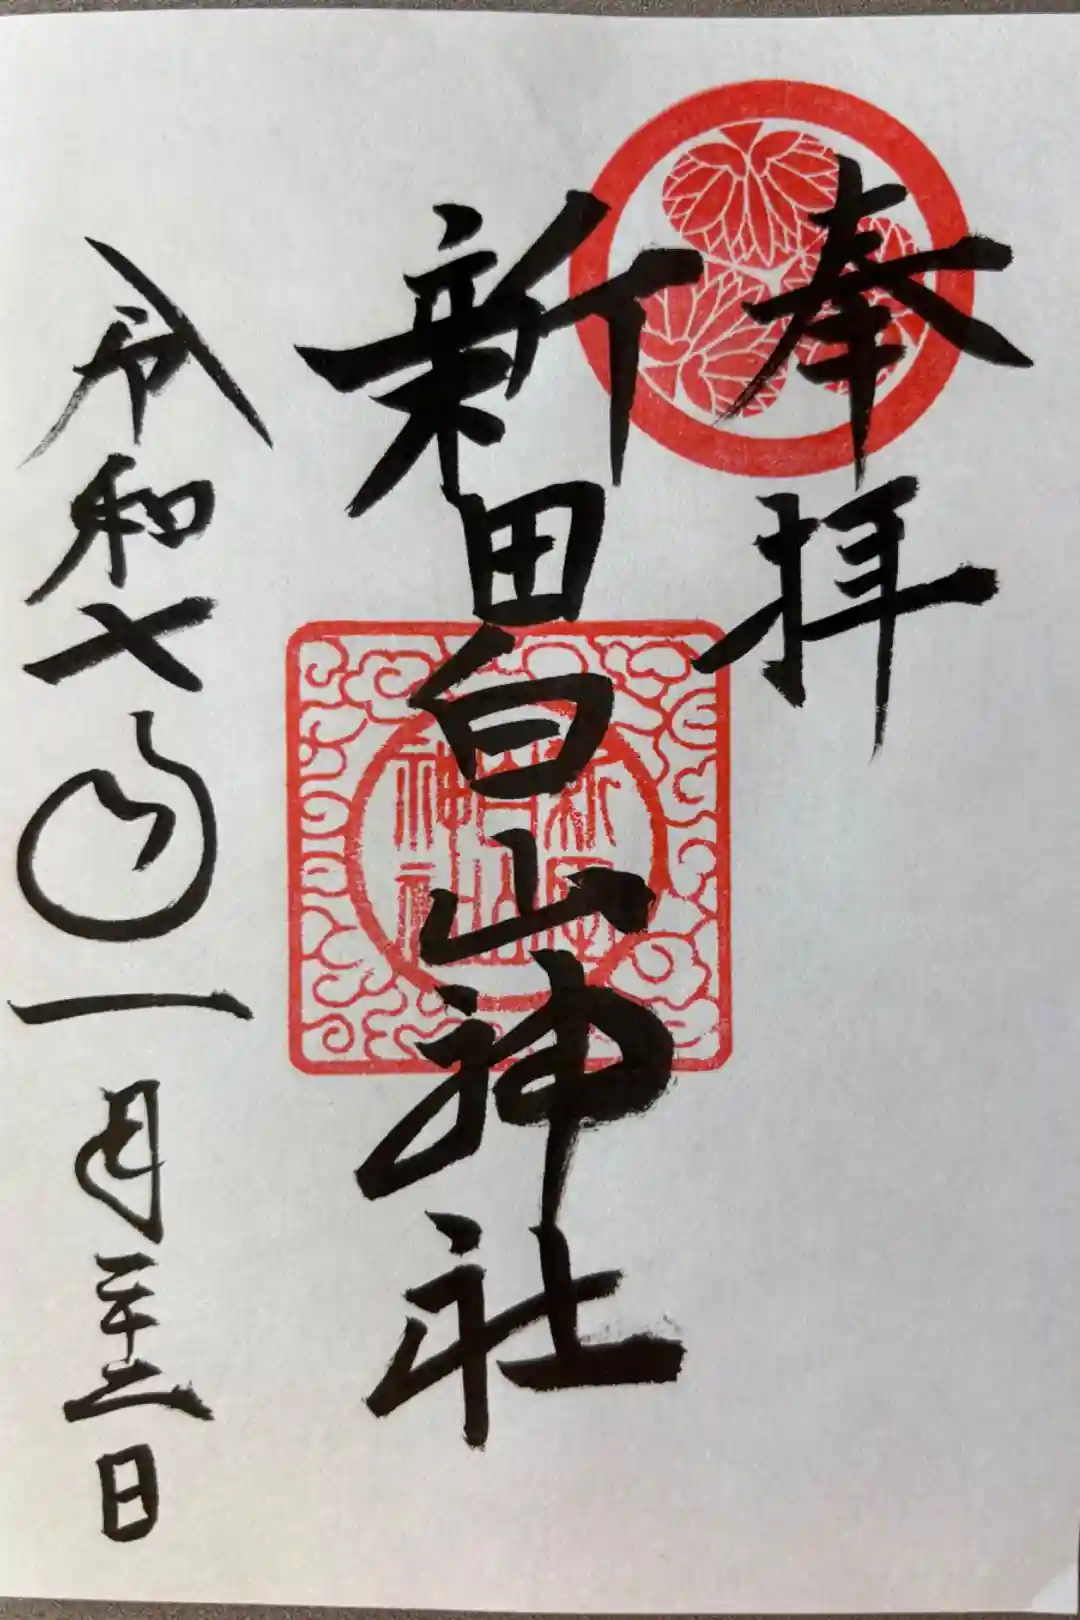 奉拝
新田白山神社
令和七年一月二十二日
新田
白山
神社